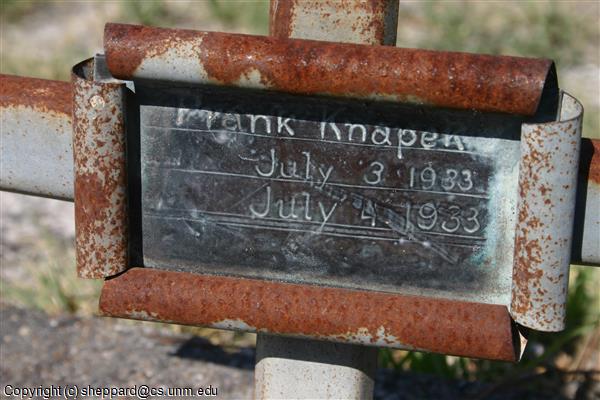 Frank Knapek
July 3 1933
July 4 1933
Copyright (c) sheppard@cs.unm.edu